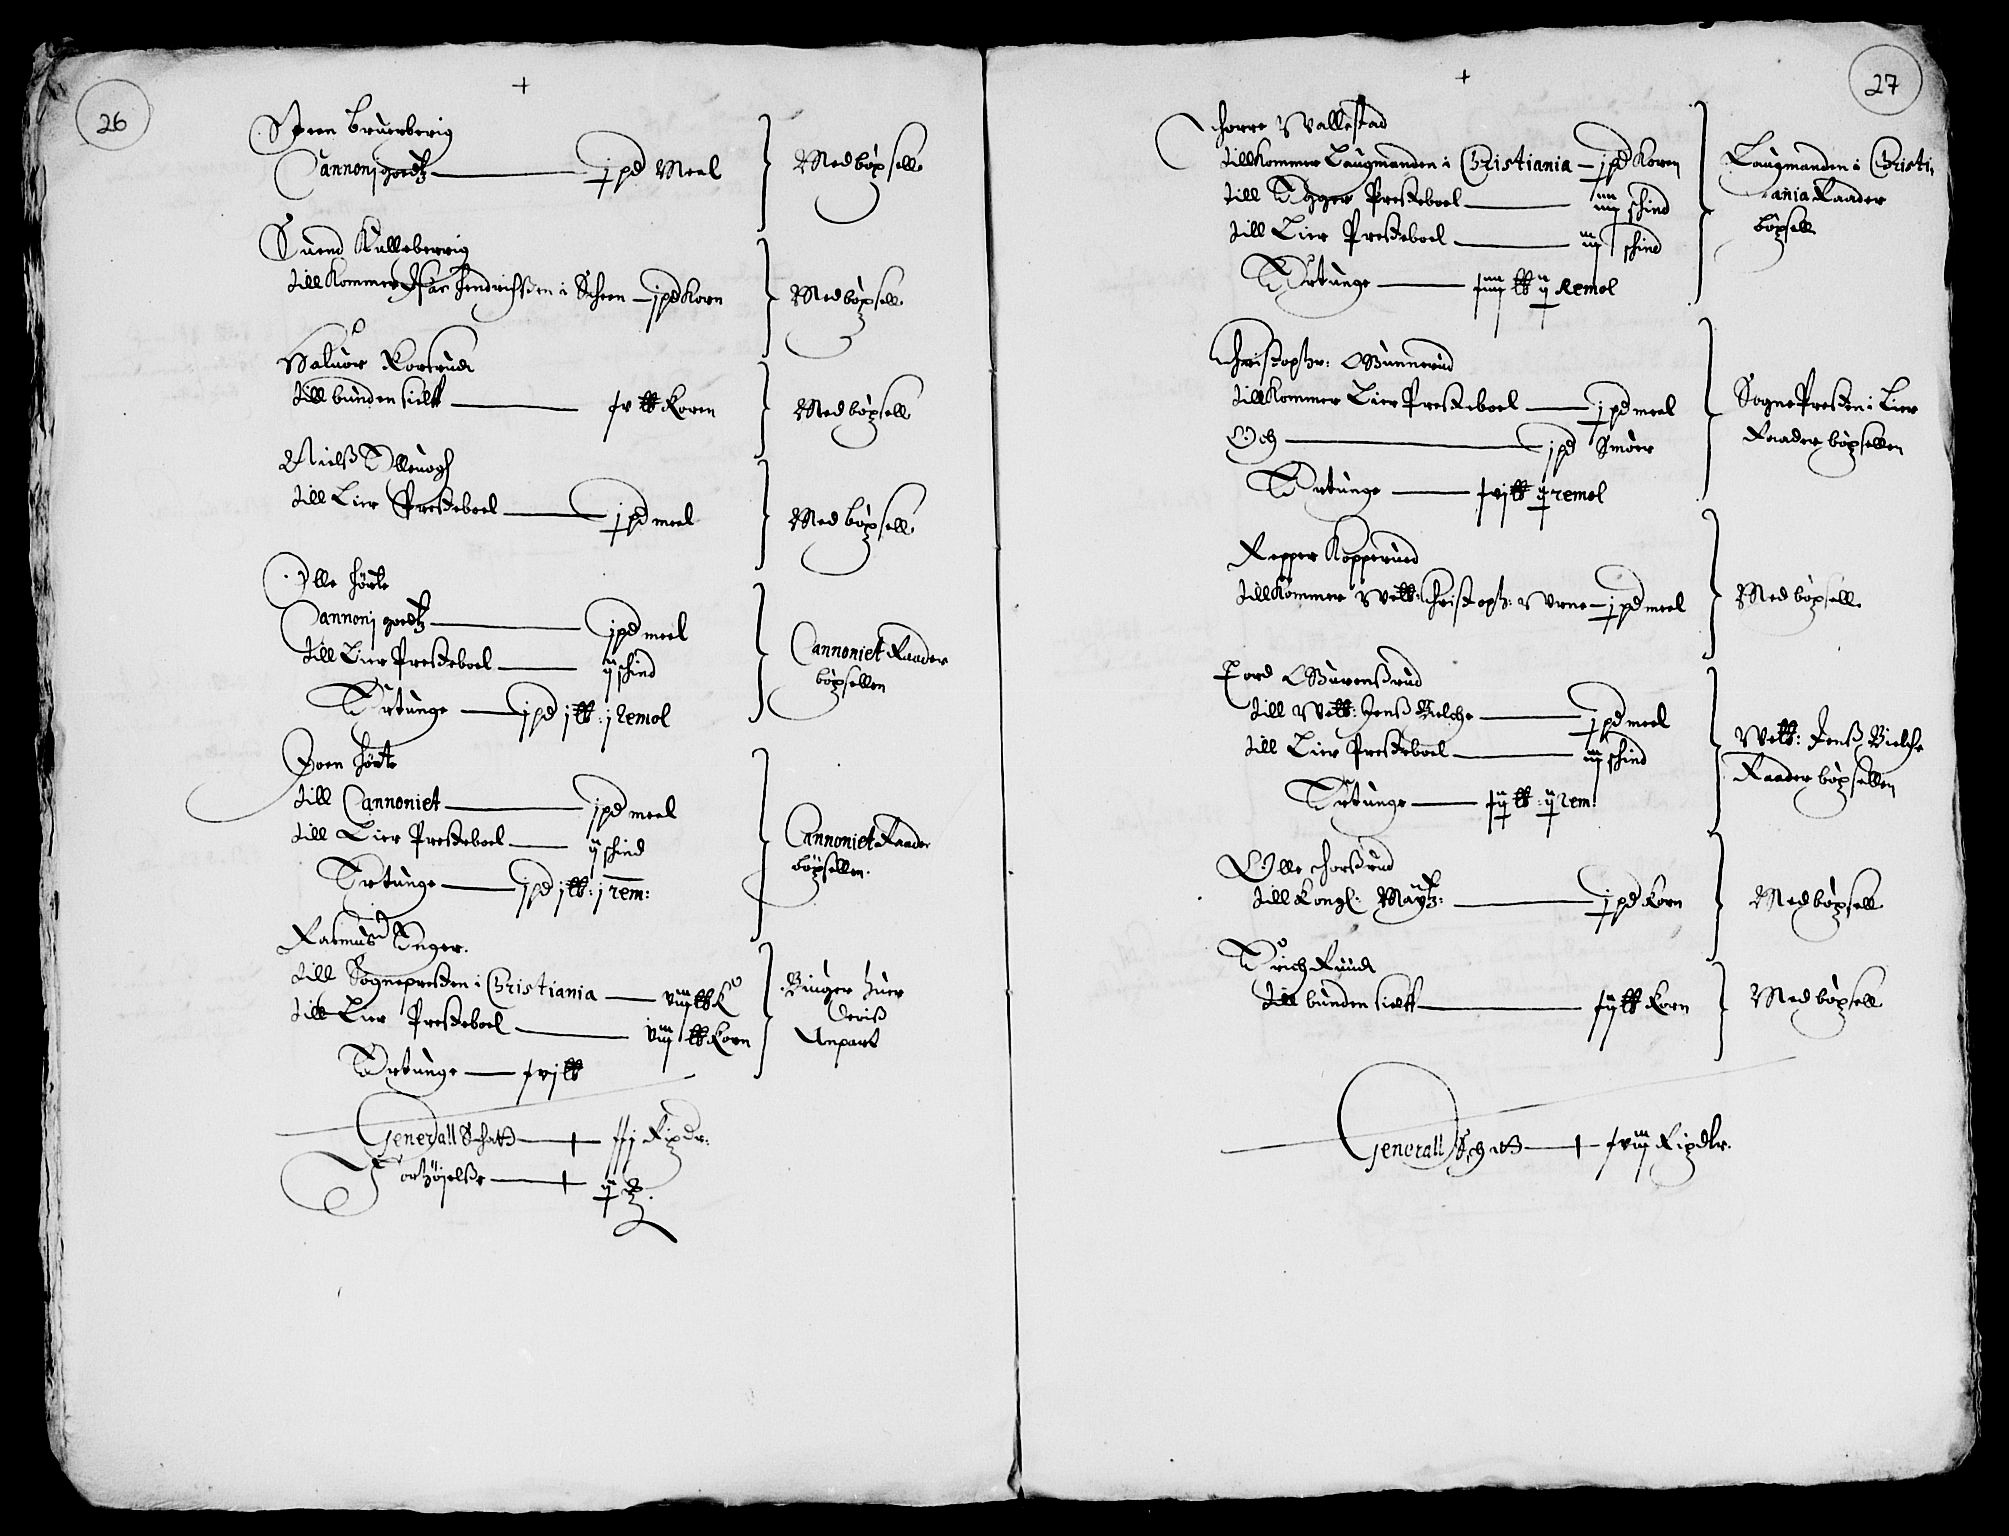 26
+
Joen Bruerberig
Cannonj goedtz — j pd Meel
Med böxselle
Suend Kulleberrig
till Kommer Ifar Hendrichßen i Scheen — j pd Korn
Med böxselle
Haluor Kortrudt
till bunden sielff — x v ℔ Koren
Med böxselle
Nielß Olleuog
till Lier Presteboel — j pd meel
Med böxselle
Olle Hörte
Cannonj goedtz — j pd meel
till Lier Presteboel — ij schind
Ørtunge — j pd j ℔: j remol
Cannoniet Raader
böxsellen
Joen Hörte
till Cannoniet — j pd meel
till Lier Presteboel — ij schind
Ørtunge — j pd j ℔: j rem:
Cannoniet Raader
böxsellen.
Rasmus Unger.
till Sognepresten i Christiania — viij ℔ K
till Lier Presteboel — viij ℔ Korn
Ørtunge — xvj ℔
Bruger huer
Deriß
Anpart
Generall Schatt — xxj Rixdr:
Forhöjelße — ij
27
+
Thorre Wallestad
till Kommer Laugmanden i Christiania — j pd Koren
till Egger Presteboel — iiij schind
till Lier Presteboel — iij schind
Ørtunge — xiiij ℔ ij Remol
Laugmanden i Christi,
ania Raader
böxsell
Christopher: Gunnerud
till Kommer Lier Presteboel — j pd meel
Och — j pd Smöer
Ørtunge — xvj ℔ ij remol
Sogne Presten i Lier
Raader böxsellen
Repper Kopperud
till Kommer Welb: Christoph: Wrne — j pd meel
Med böxselle
Tord Gurenßrud
till Welb: Jenß Bielche — j pd meel
till Lier Presteboel — iij schind
Ørtunge — xij ℔: ij rem:
Welb: Jenß Bielche
Raader böxsellen
Olle Thorßrud
till Kongl: Maytz: — j pd Korn
Med böxsell
Ørich Ruudt
till bunden sielff — xij ℔ Korn
Med böxsell
Generall Schatt — xviij Rixdlr.